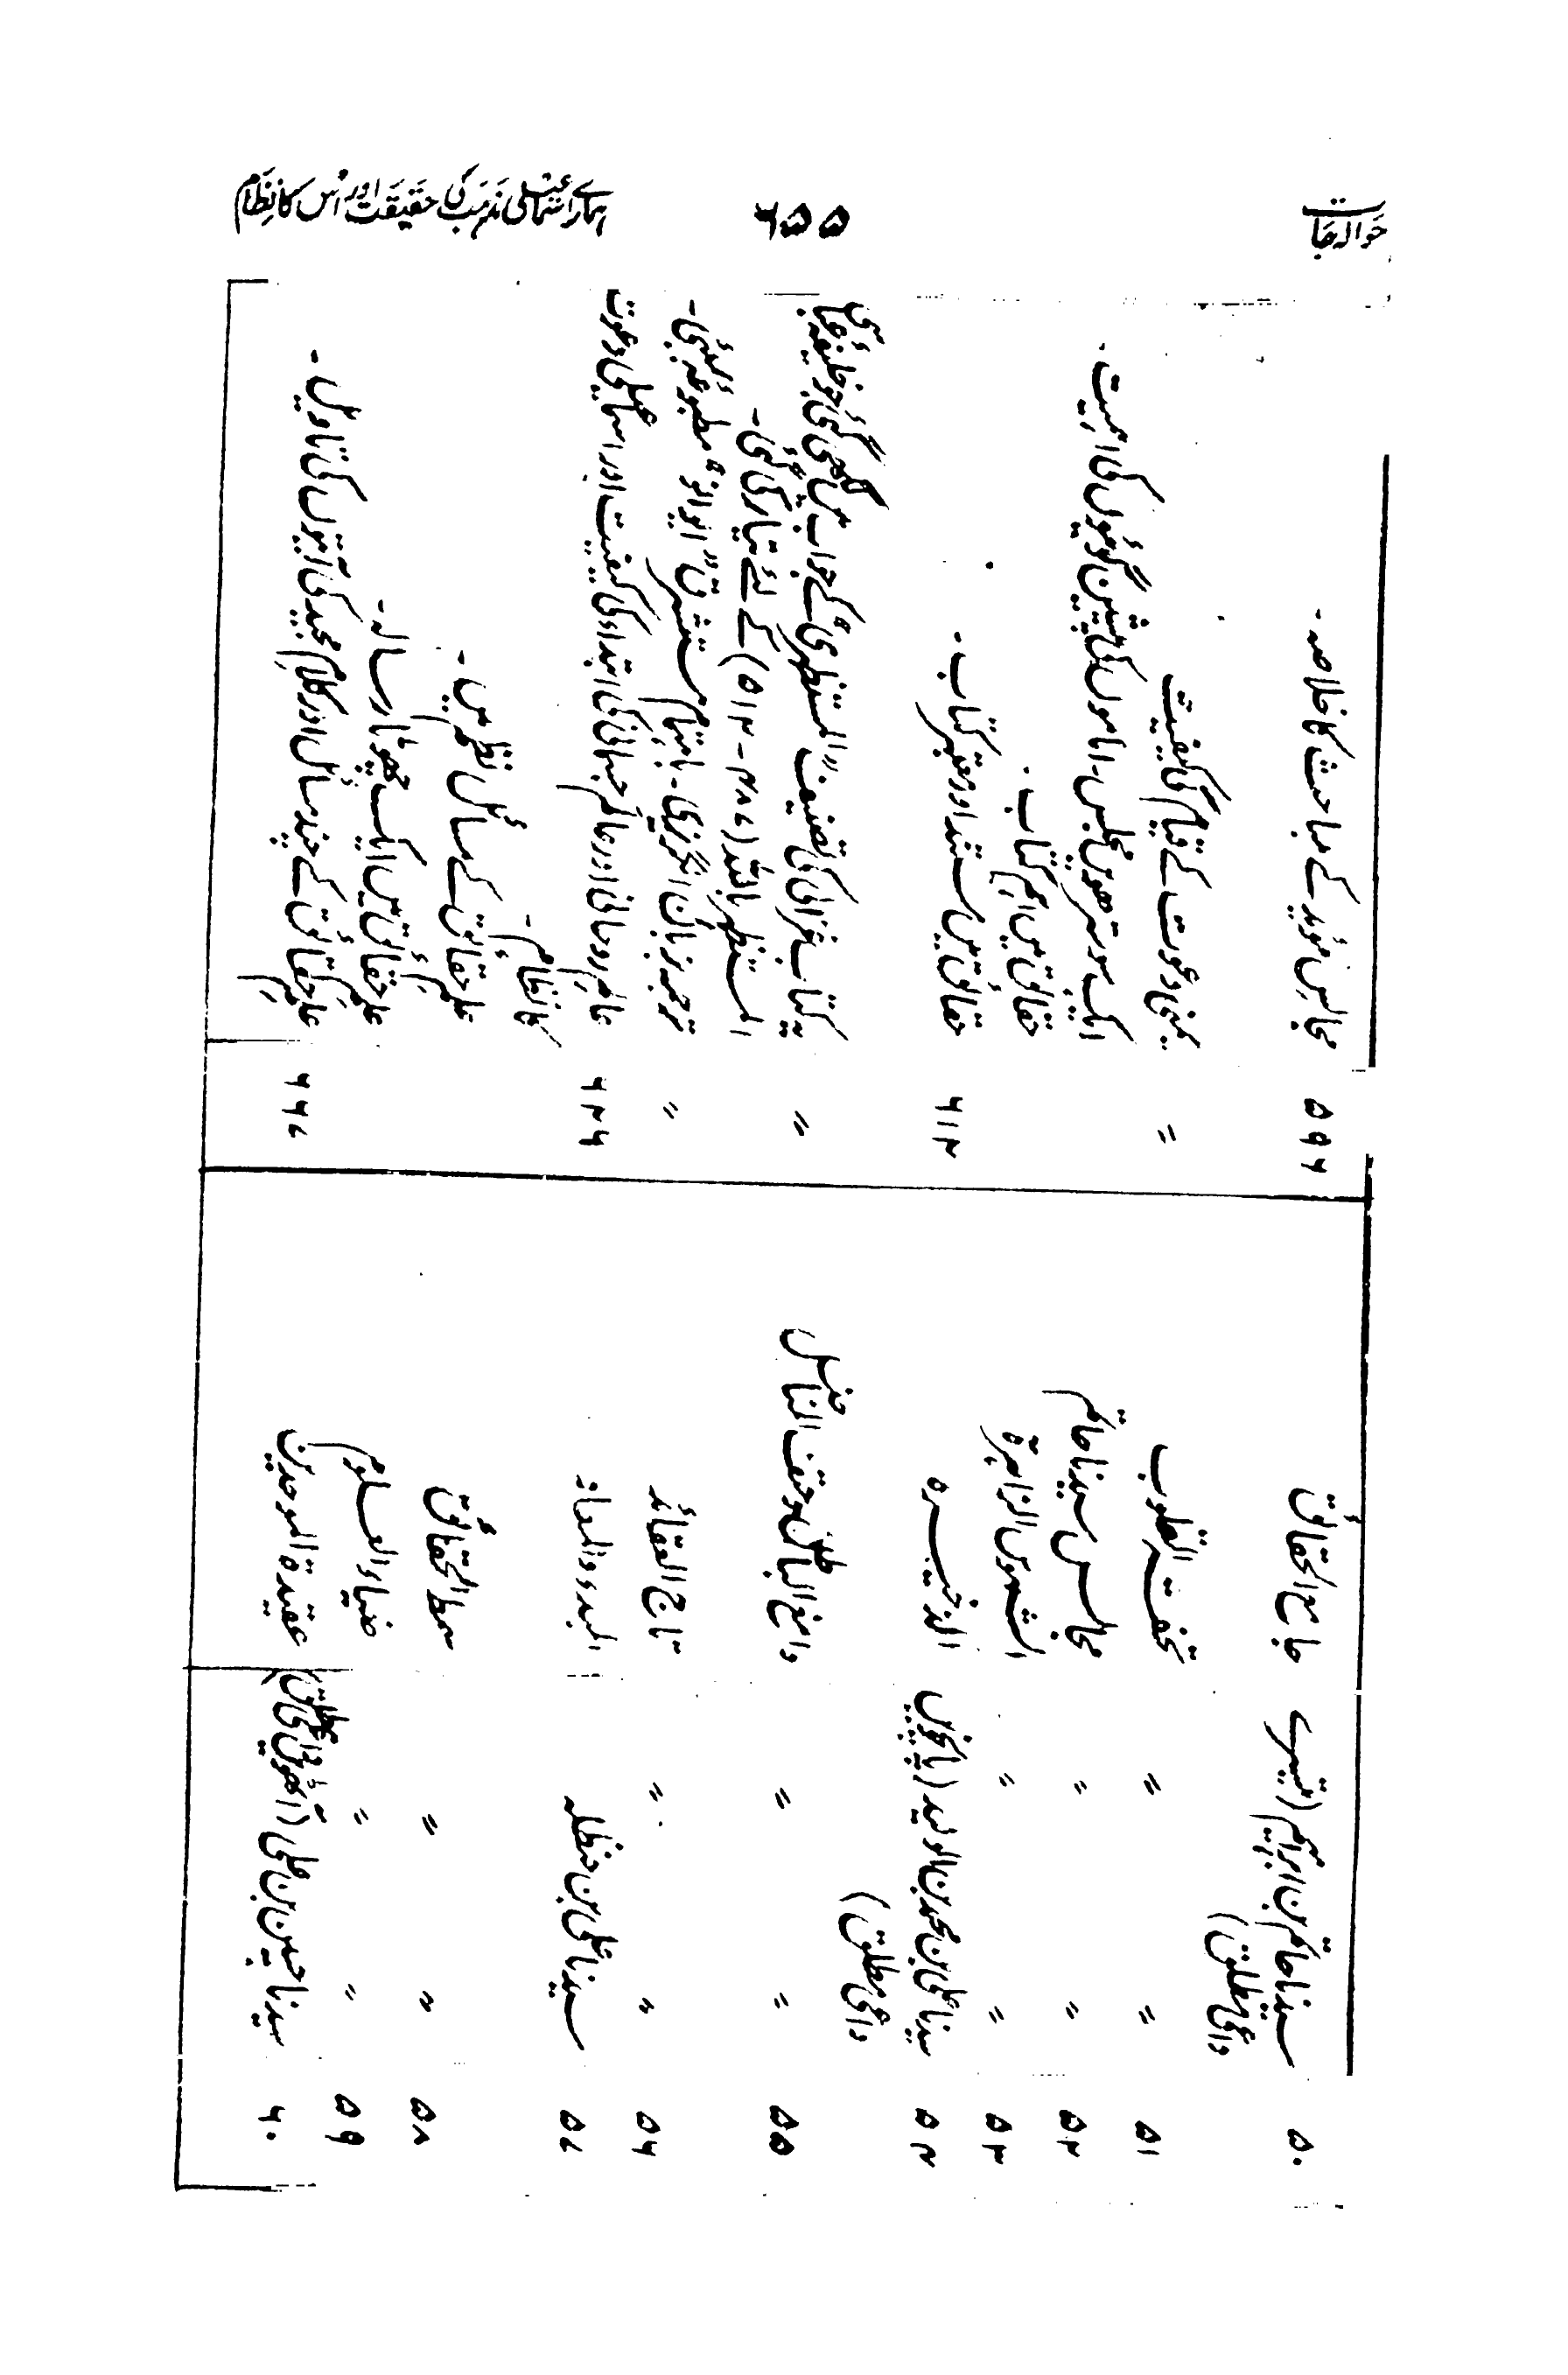 حوالہ جات
۶۵۵
ہمارے اسماعیلی مذہب کی حقیقت اور اس کا نظام
۵۰ سیدنا حاتم بن ابراہیم (تیسرے داعی مطلق) جامع الحقائق ۵۹۶ مجالس مؤیدیہ کے مباحث کا خلاصہ ۔
۵۱ " " تحفۃ القلوب " یمنی دعوت کے قیام کی کیفیت
۵۲ " " مجالس سیدنا حاتم ایک سو سترھویں مجلس ۔ اماموں کی پیشین گوئیوں کی اہمیت ۔
۵۳ " " الشموس الزاہرۃ حقائق میں اہم کتاب ۔
۵۴ سیدنا علی بن محمد بن الولید (پانچویں داعی مطلق) الذخیرہ ۶۱۲ حقائق میں مستند اور معتبر کتاب ۔
۵۵ " " دامغ الباطل وحتف المناضل " یہ کتاب غزالی کی تصنیف "المستظہری" کے جواب میں لکھی گئی جو خلیفہ عباسی
المستظہر باللہ (۴۸۷ - ۵۱۲) کے لئے تیار کی گئی تھی ۔
۵۶ " " تاج العقائد " ترجمہ بزبان انگریزی ۔ باہتمام مستشرق "ایوانو" مطبوعہ بمبئی ۔
۵۷ سیدنا علی بن حنظلہ المبدء والمعاد ۶۲۶ عالم روحانی اور عالم جسمانی کی ابتداء کی کیفیت اور اسماعیلی دعوت
کا نظام ۔
۵۸ " " سمط الحقائق علم حقائق کے مسائل نظم میں ۔
۵۹ " " ضیاء العلوم علم حقائق میں ایک چھوٹا رسالہ ۔
۶۰ سیدنا حسین بن علی (آٹھویں داعی مطلق) عقیدۃ الموحدین ۶۶۷ علم حقائق کے چند مسائل اور کلام مجید کی آیتوں کی تاویل ۔